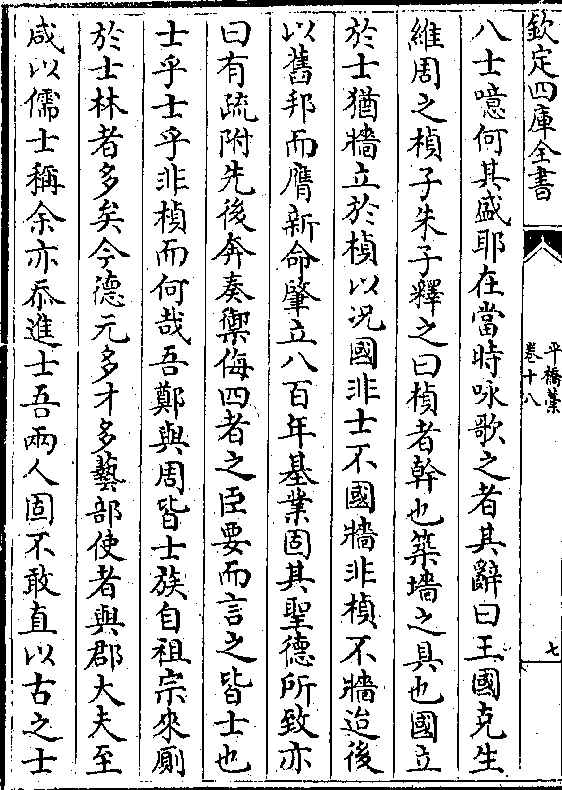 欽定四庫全書
平橋藁
卷十八
七
八士噫何其盛耶在當時咏歌之者其辭曰王國克生
維周之楨子朱子釋之曰楨者幹也築墻之具也國立
於士猶墻立於楨以况國非士不國墻非楨不墻迨後
以舊邦而膺新命肇立八百年基業固其聖德所致亦
曰有疏附先後奔奏禦侮四者之臣要而言之皆士也
士乎士乎非楨而何哉吾鄭與周皆士族自祖宗來厠
於士林者多矣今德元多才多藝部使者與郡大夫至
咸以儒士稱余亦忝進士吾兩人固不敢直以古之士